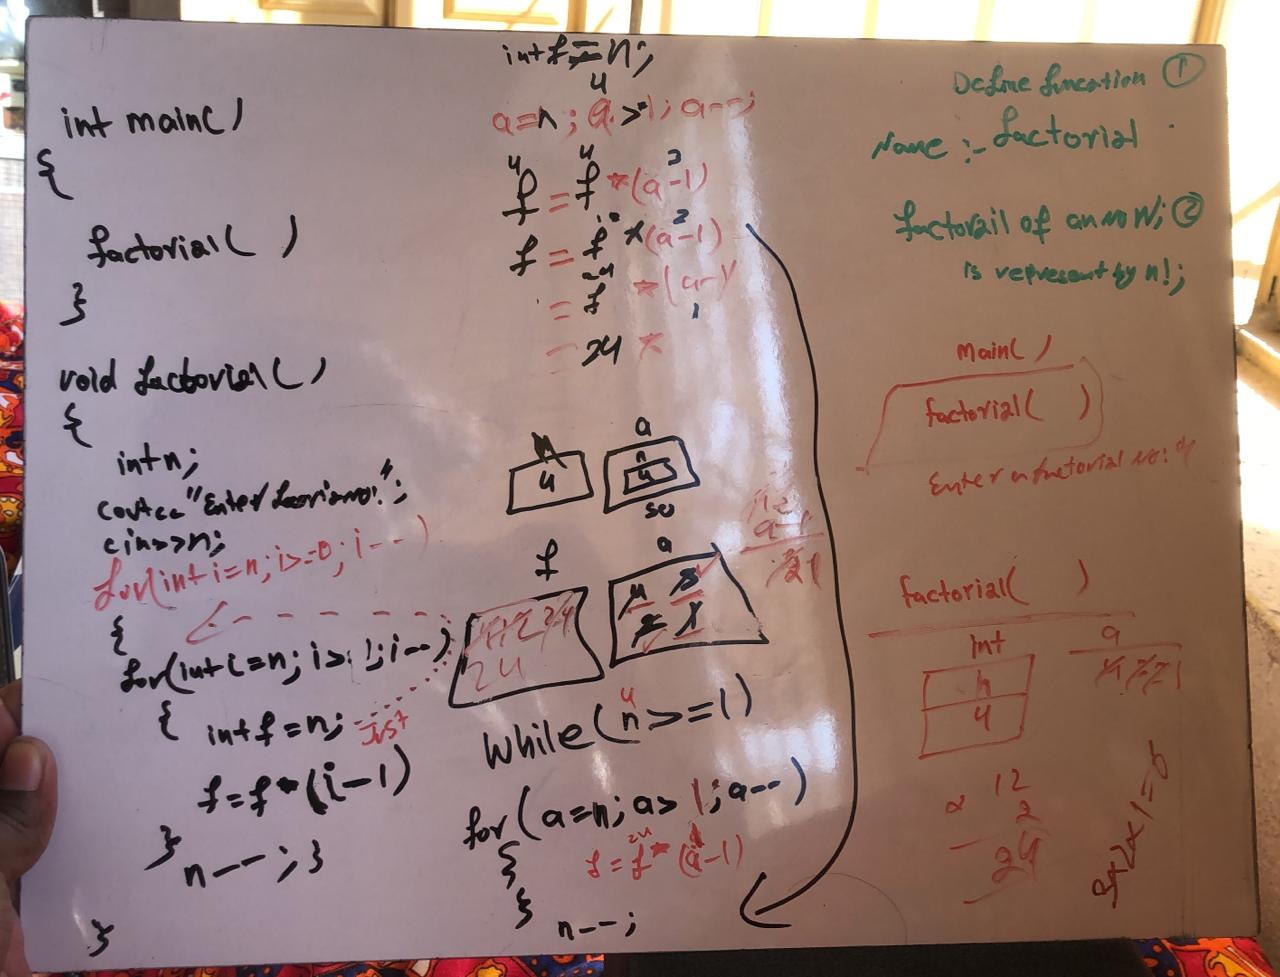 int main()
{
factorial( )
}
void factorial()
{
int n;
cout<< "Enter
cin>>n;
for(int i=n; i>=0; i--)
{
for(int i=n; i> 1; i--)
{ int f=n;
f=f*(i-1)
}
n--; }
}
int f=n;
4
a=n; a>1; a--;
4 4 3
f = f *(a-1)
2
f = f *(a-1)
24
= f *(a-1)
1
= 24 *
n a
4 n
4
so
f a
a-1
24
4
While(n>=1)
for(a=n; a> 1; a--)
{ 24
f=f*(a-1)
}
n--;
Define function 1
Name :- factorial
factorail of an no N; 2
is represent by n!;
main()
factorial( )
Enter a factorial no: 4
factorial( )
int a
n
4
12
2
24
3x2x1=6